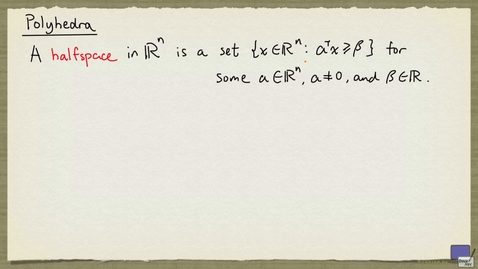 Polyhedra
A halfspace in ℝⁿ is a set {x∈ℝⁿ: aᵀx ≥ β} for
some a∈ℝⁿ, a≠0, and β∈ℝ.